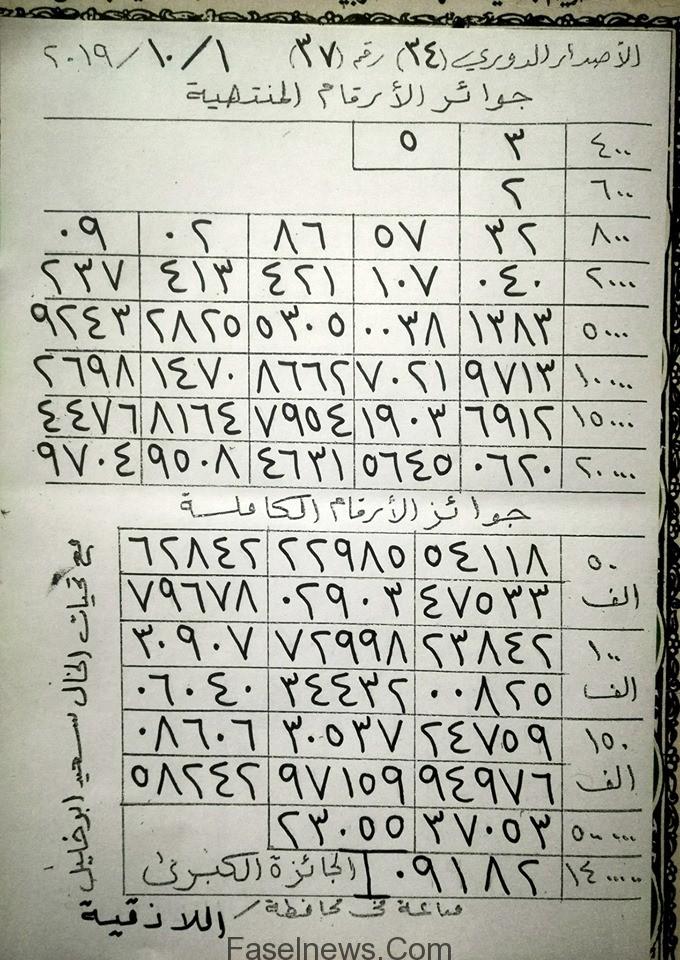 الأصدار الدوري (٣٤) رقم (٣٧) ١/١٠/٢٠١٩
جوائز الأرقام المنتهية
٤٠٠ ٣ ٥
٦٠٠ ٢
٨٠٠ ٣٢ ٥٧ ٨٦ ٠٢ ٠٩
٢٠٠٠ ٠٤٠ ١٠٧ ٤٢١ ٤١٣ ٢٣٧
٥٠٠٠ ١٣٨٣ ٠٠٣٨ ٥٣٠٥ ٢٨٢٥ ٩٢٤٣
١٠٠٠٠ ٩٧١٣ ٧٠٢١ ٨٦٦٢ ١٤٧٠ ٢٦٩٨
١٥٠٠٠ ٦٩١٢ ١٩٠٣ ٧٩٥٤ ٨١٦٤ ٤٤٧٦
٢٠٠٠٠ ٠٦٢٠ ٥٦٤٥ ٤٦٣١ ٩٥٠٨ ٩٧٠٤
جوائز الأرقام الكاملة
٥٠ ٥٤١١٨ ٢٢٩٨٥ ٦٢٨٤٢
الف ٤٧٥٣٣ ٠٢٩٠٣ ٧٩٦٧٨
١٠٠ ٢٣٨٤٢ ٧٢٩٩٨ ٣٠٩٠٧
الف ٠٠٨٢٥ ٣٤٤٣٢ ٠٦٠٤٠
١٥٠ ٢٤٧٥٩ ٣٠٥٣٧ ٠٨٦٠٦
الف ٩٤٩٧٦ ٩٧١٥٩ ٥٨٢٤٢
٥٠٠٠٠٠ ٣٧٠٥٣ ٢٣٠٥٥
٠٩١٨٢ الجائزة الكبرى
مباعة في محافظة / اللاذقية
مع تحيات الخال سعيد ابو خليل
Faselnews.Com